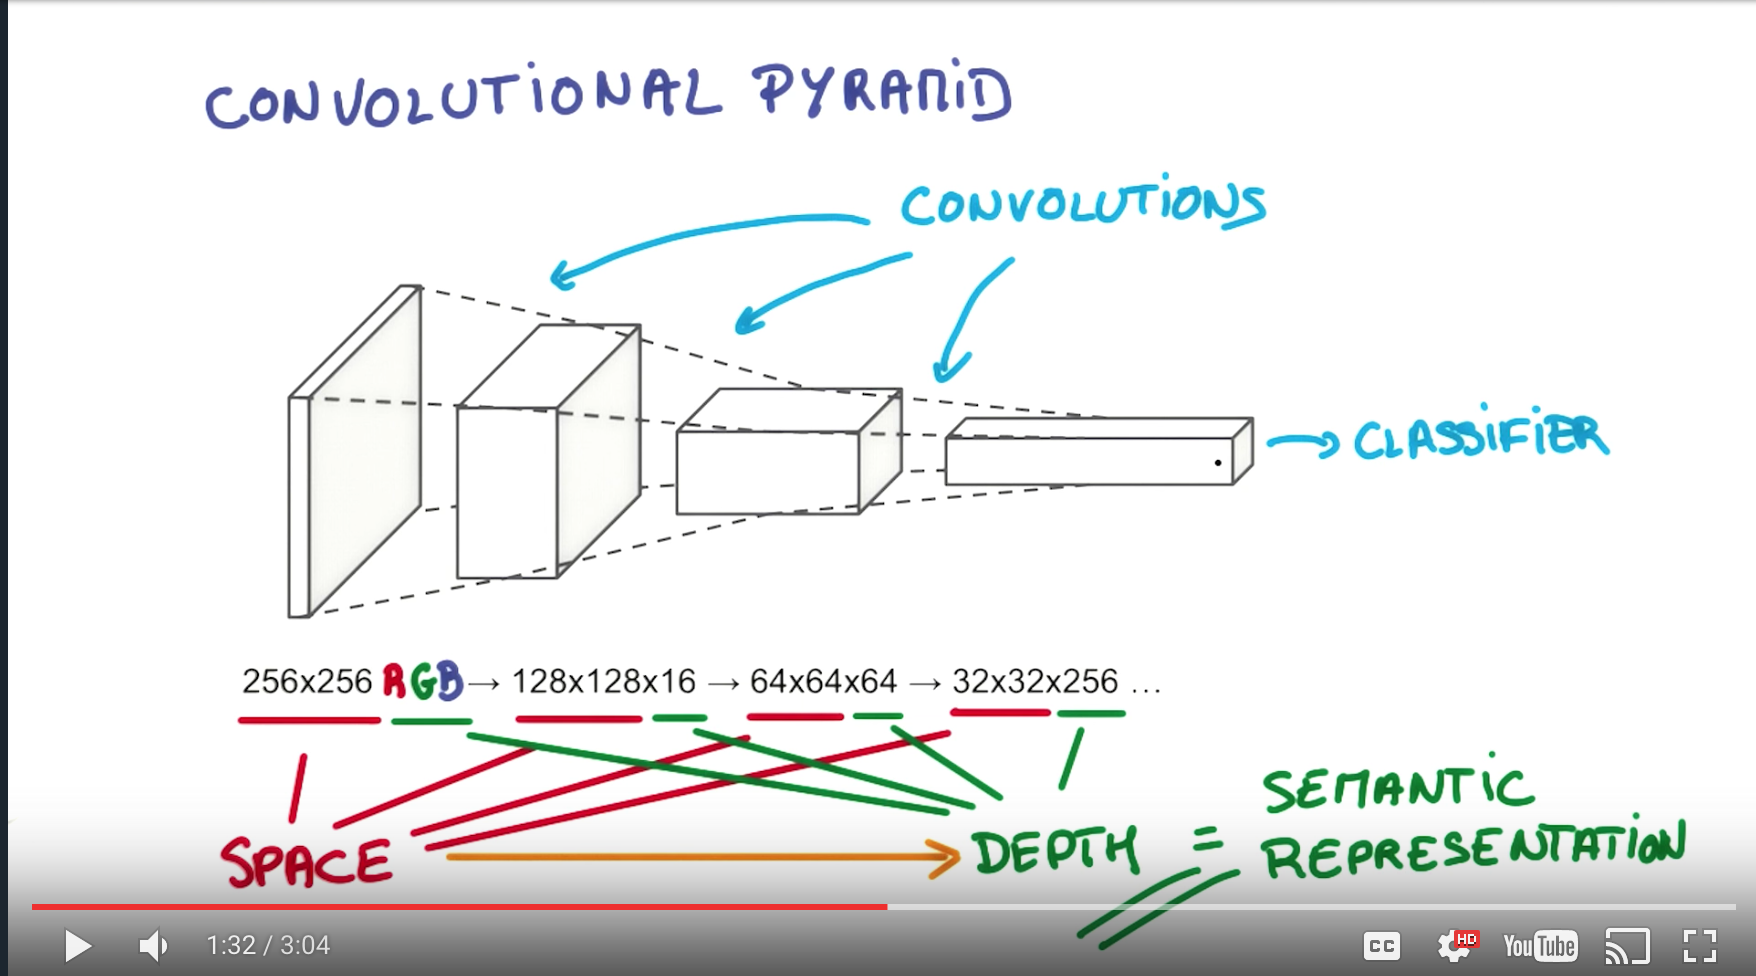 CONVOLUTIONAL PYRAMID
CONVOLUTIONS
CLASSIFIER
256x256 RGB → 128x128x16 → 64x64x64 → 32x32x256 ...
SPACE → DEPTH = SEMANTIC
REPRESENTATION
1:32 / 3:04
CC
HD
YouTube